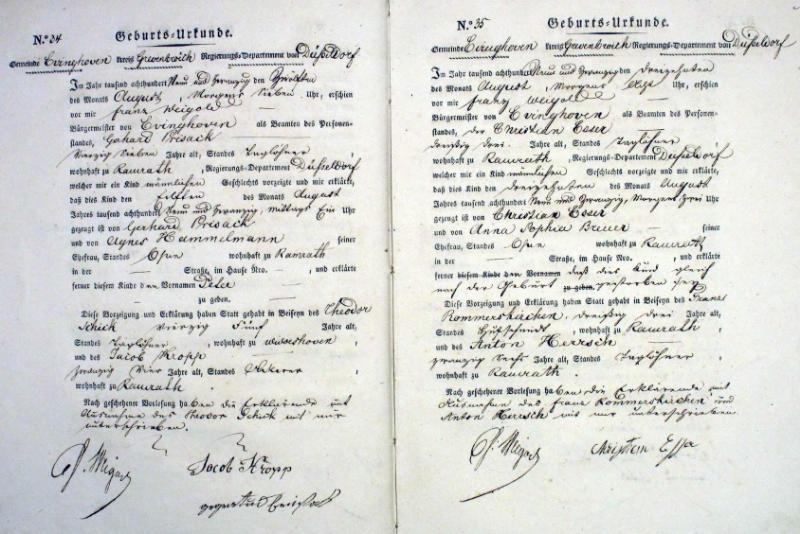 N.º 34 Geburts-Urkunde.
Gemeinde Evinghoven Kreis Grevenbroich Regierungs-Departement von Düsseldorf
Im Jahr tausend achthundert Neun und Zwanzig den
des Monats August, Morgens Sieben Uhr, erschien
vor mir franz Weigold
Bürgermeister von Evinghoven als Beamten des Personen-
standes, Gerhard Prisack
Vierzig Sieben Jahre alt, Standes Taglöhner
wohnhaft zu Ramrath, Regierungs-Departement Düsseldorf
welcher mir ein Kind männlichen Geschlechts vorzeigte und mir erklärte,
daß dies Kind den eilften des Monats August
Jahres tausend achthundert Neun und Zwanzig, Mittags Ein Uhr
gezeugt ist von Gerhard Prisack
und von Agnes Hammelmann seiner
Ehefrau, Standes Ohne wohnhaft zu Ramrath
in der Straße, im Hause Nro. , und erklärte
ferner diesem Kinde den Vornamen Peter
zu geben.
Diese Vorzeigung und Erklärung haben Statt gehabt in Beiseyn des Theodor
Schick Vierzig Fünf Jahre alt,
Standes Taglöhner, wohnhaft zu
und des Jacob Kropp
Zwanzig Vier Jahre alt, Standes Ackerer
wohnhaft zu Ramrath.
Nach geschehener Vorlesung haben die Erklärende mit
Ausnahme des Theodor Schick mit mir
unterschrieben.
Jacob Kropp
N.º 35 Geburts-Urkunde.
Gemeinde Evinghoven Kreis Grevenbroich Regierungs-Departement von Düsseldorf
Im Jahr tausend achthundert Neun und Zwanzig den dreizehnten
des Monats August, Morgens Uhr, erschien
vor mir franz Weigold
Bürgermeister von Evinghoven als Beamten des Personen-
standes, der Christian Esser
dreißig drei Jahre alt, Standes Taglöhner
wohnhaft zu Ramrath, Regierungs-Departement Düsseldorf
welcher mir ein Kind männlichen Geschlechts vorzeigte und mir erklärte,
daß dies Kind den dreizehnten des Monats August
Jahres tausend achthundert Neun und Zwanzig, Morgens Uhr
gezeugt ist von Christian Esser
und von Anna Sophia Breuer seiner
Ehefrau, Standes Ohne wohnhaft zu Ramrath
in der Straße, im Hause Nro. , und erklärte
ferner diesem Kinde den Vornamen daß das Kind gleich
nach der Geburt zu geben gestorben sey
Diese Vorzeigung und Erklärung haben Statt gehabt in Beiseyn des Franz
Rommerskirchen, dreißig drei Jahre alt,
Standes, wohnhaft zu Ramrath,
und des Anton Herrsch
zwanzig Sechs Jahre alt, Standes Taglöhner,
wohnhaft zu Ramrath.
Nach geschehener Vorlesung haben die Erklärende mit
Ausnahme des franz Rommerskirchen und
Anton Herrsch mit mir unterschrieben.